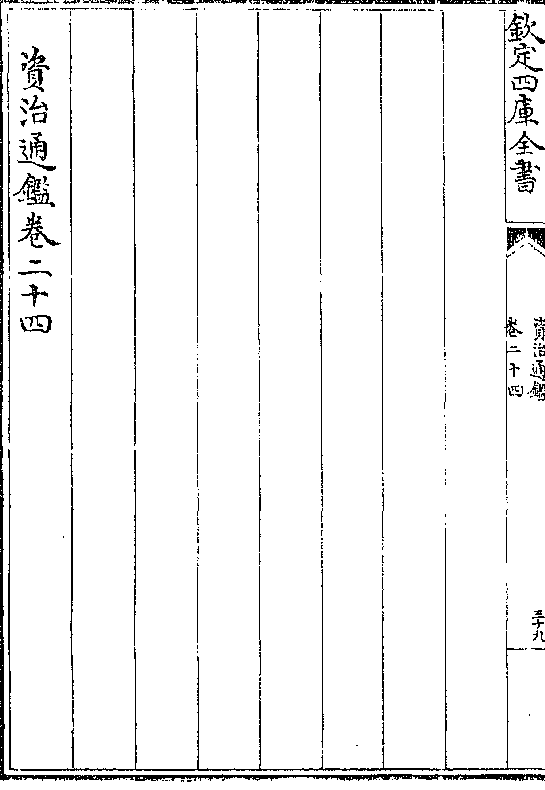 欽定四庫全書
資治通鑑
卷二十四
五十九
資治通鑑卷二十四